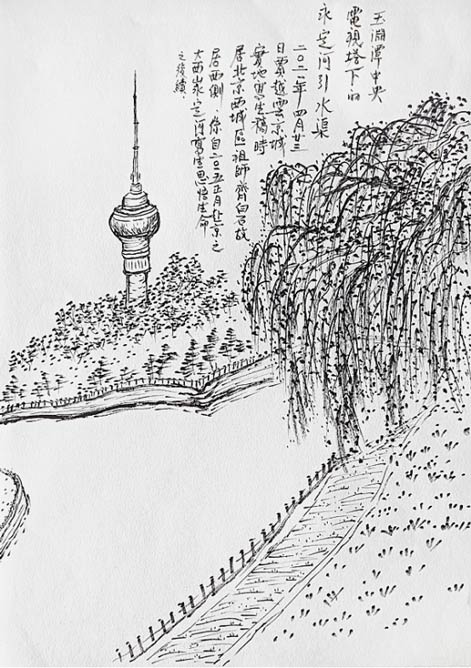 玉淵潭中央
電視塔下的
永定河引水渠
二〇二一年四月廿三
日賈越雲京城
實地寫生稿時
居北京西城區祖師齊白石故
居西側。係自二〇一五年五月在京之
大西山永定河寫生思悟生命
之後續.